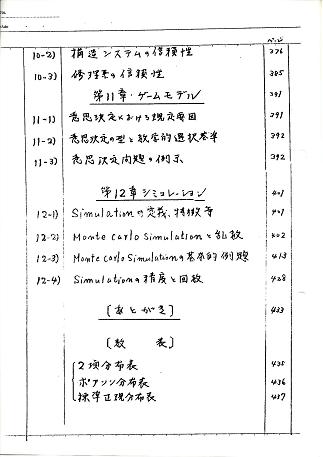 ページ
10-2) 構造システムの信頼性 376
10-3) 修理系の信頼性 385
第11章・ゲームモデル 391
11-1) 意思決定における規定要因 391
11-2) 意思決定の型と数学的選択基準 392
11-3) 意思決定問題の例示 392
第12章シミュレーション 401
12-1) Simulationの定義、特徴等 401
12-2) Monte Carlo Simulationと乱数 402
12-3) Monte Carlo Simulationの基本的例題 413
12-4) Simulationの精度と回数 428
〔あとがき〕 433
〔数 表〕
2項分布表 435
ポアソン分布表 436
標準正規分布表 437